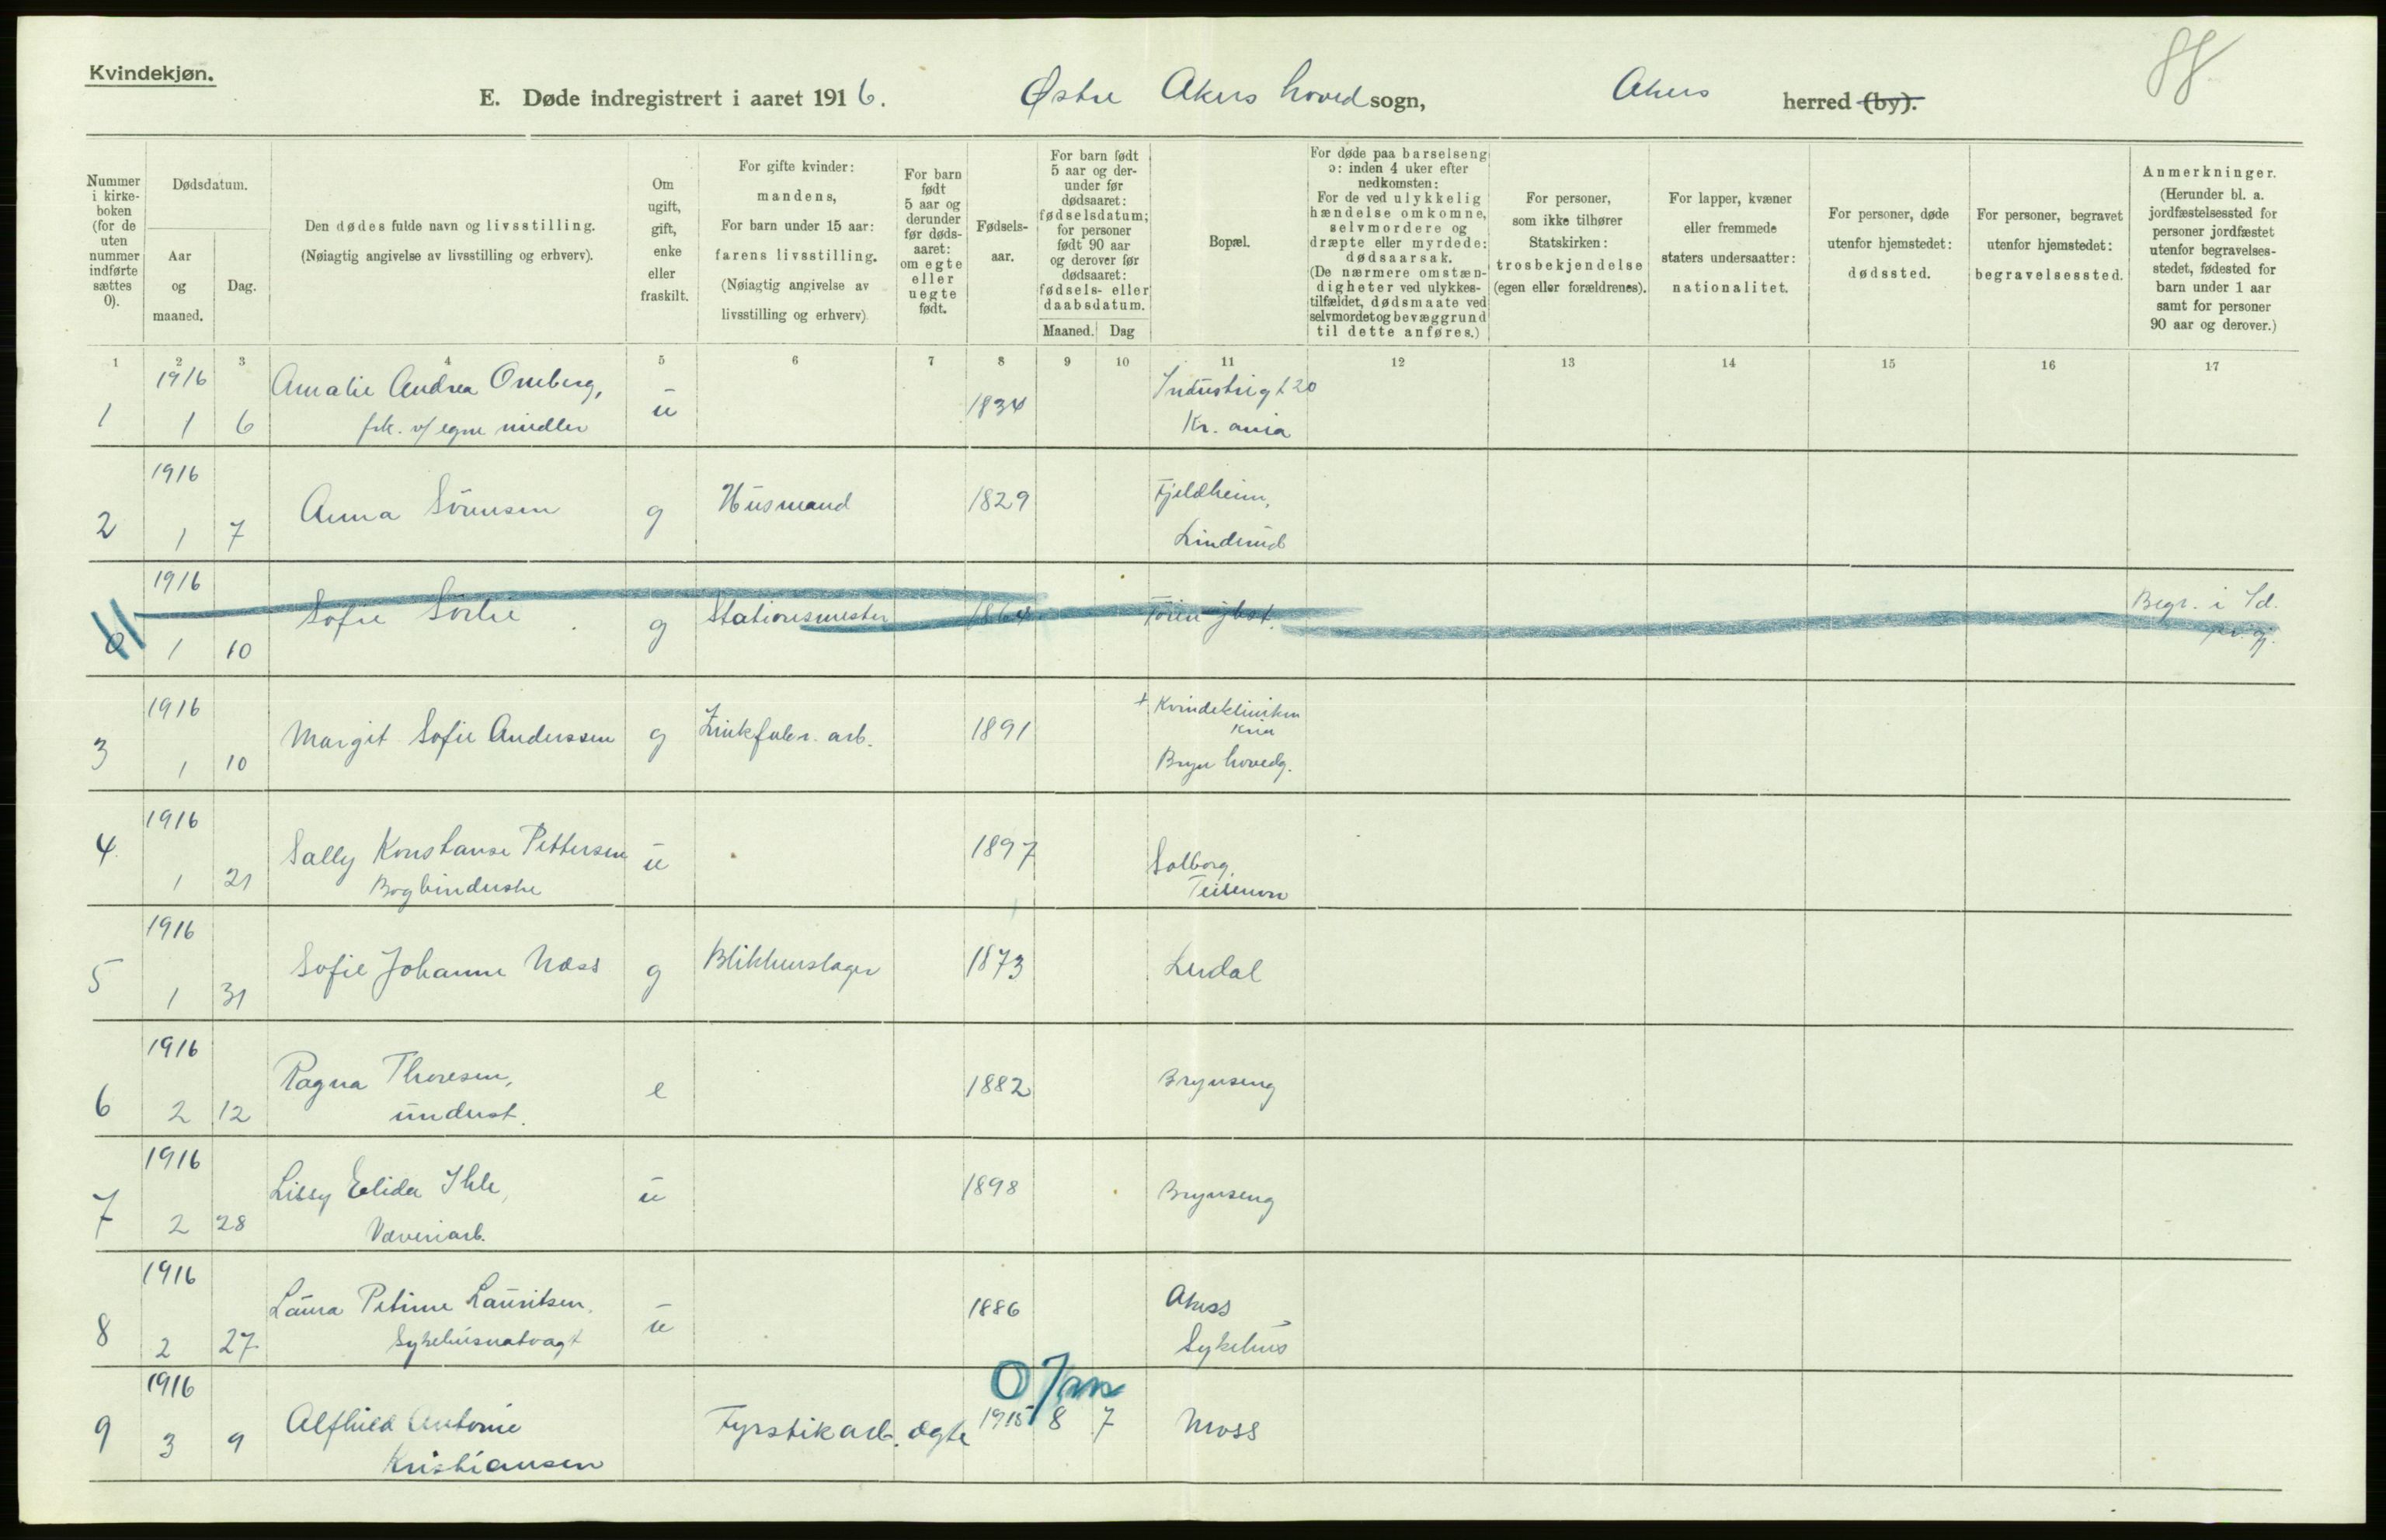 Kvindekjøn.
E. Døde indregistrert i aaret 1916. Østre Akers hovedsogn, Akers herred (by).
88
Nummer i kirke-boken (for de uten nummer indførte sættes 0).
Dødsdatum.
Aar og maaned.
Dag.
Den dødes fulde navn og livsstilling.
(Nøiagtig angivelse av livsstilling og erhverv).
Om ugift, gift, enke eller fraskilt.
For gifte kvinder: mandens,
For barn under 15 aar: farens livsstilling.
(Nøiagtig angivelse av livsstilling og erhverv)
For barn født 5 aar og derunder før døds-aaret: om egte eller uegte født.
Fødsels-aar.
For barn født 5 aar og der-under før dødsaaret: fødselsdatum; for personer født 90 aar og derover før dødsaaret: fødsels- eller daabsdatum.
Maaned. Dag
Bopæl.
For døde paa barselseng ɔ: inden 4 uker efter nedkomsten:
For de ved ulykkelig hændelse omkomne, selvmordere og dræpte eller myrdede: dødsaarsak.
(De nærmere omstæn-digheter ved ulykkes-tilfældet, dødsmaate ved selvmordet og bevæggrund til dette anføres.)
For personer, som ikke tilhører Statskirken: trosbekjendelse (egen eller forældrenes).
For lapper, kvæner eller fremmede staters undersaatter: nationalitet.
For personer, døde utenfor hjemstedet: dødssted.
For personer, begravet utenfor hjemstedet: begravelsessted.
Anmerkninger.
(Herunder bl. a. jordfæstelsessted for personer jordfæstet utenfor begravelses-stedet, fødested for barn under 1 aar samt for personer 90 aar og derover.)
1 2 3 4 5 6 7 8 9 10 11 12 13 14 15 16 17
1916 Amalie Andrea Omberg, Industrigt 20
1 1 6 frk. v/ egne midler u 1834 Kr. ania
1916
2 1 7 Anna Sörensen g Husmand 1829 Fjeldheim,
Linderud
1916 Begr. i
0 1 10 Sofie Sörlie g Stationsmester 1864
1916 + Kvindekliniken
Kria
3 1 10 Margit Sofie Anderssen g Zinkfabr. arb. 1891 Bryn hovedg.
1916
4. 1 21 Sally Konstanse Pettersen u 1897 Solborg,
Bogbinderske
1916
5 1 31 Sofie Johanne Næss g Blikkenslager 1873 Lerdal
1916
6 2 12 Ragna Thoresen, e 1882 Brynseng
underst.
1916
7 2 28 Lissy Elida Ihle, u 1898 Brynseng
Væveriarb.
1916
8 2 27 Laura Petrine Lauritsen, u 1886 Akers
Sykehusnatvagt Sykehus
1916
9 3 9 Alfhild Antonie Fyrstikarb. ægte 1915 8 7 Moss
Kristiansen